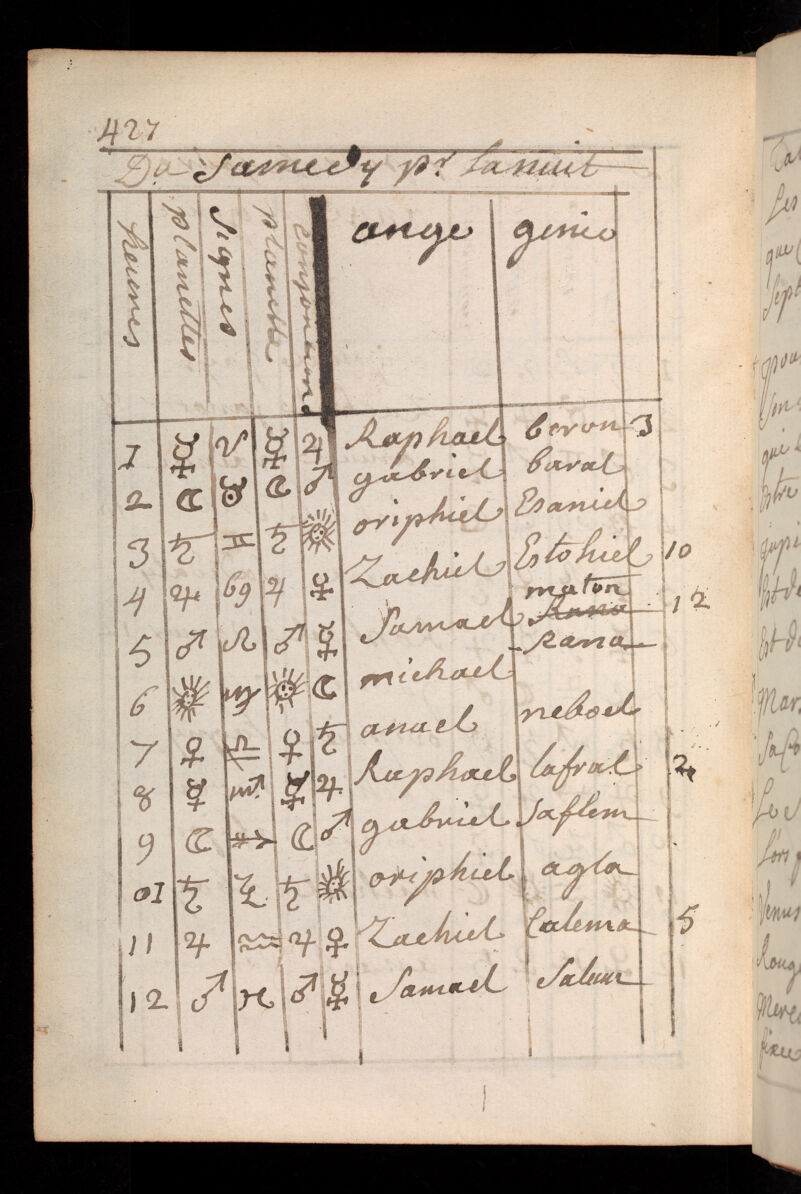 427
Du Samedy pr. la nuit
heures planettes Signes planette conjonctions ange genie
1 ☿ ♈ ☿ ♃ Raphael beron 3
2 ☾ ♉ ☾ ♂ gabriel barat
3 ♄ ♊ ♄ ☉ oriphiel Esaniel
4 ♃ ♋ ♃ ♀ Zachiel Estohiel 10
maton
5 ♂ ♌ ♂ ☿ Samael Rana 12
Rana
6 ☉ ♍ ☉ ☾ michael
7 ♀ ♎ ♀ ♄ anael neboel
8 ☿ ♏ ☿ ♃ Raphael lafral 2
9 ☾ ♐ ☾ ♂ gabriel Saflem
01 ♄ ♑ ♄ ☉ oriphiel agla
11 ♃ ♒ ♃ ♀ Zachiel Calema 5
12 ♂ ♓ ♂ ☿ Samael Salun
Les
que
Sept
qui
Mars
Venus
Rouge